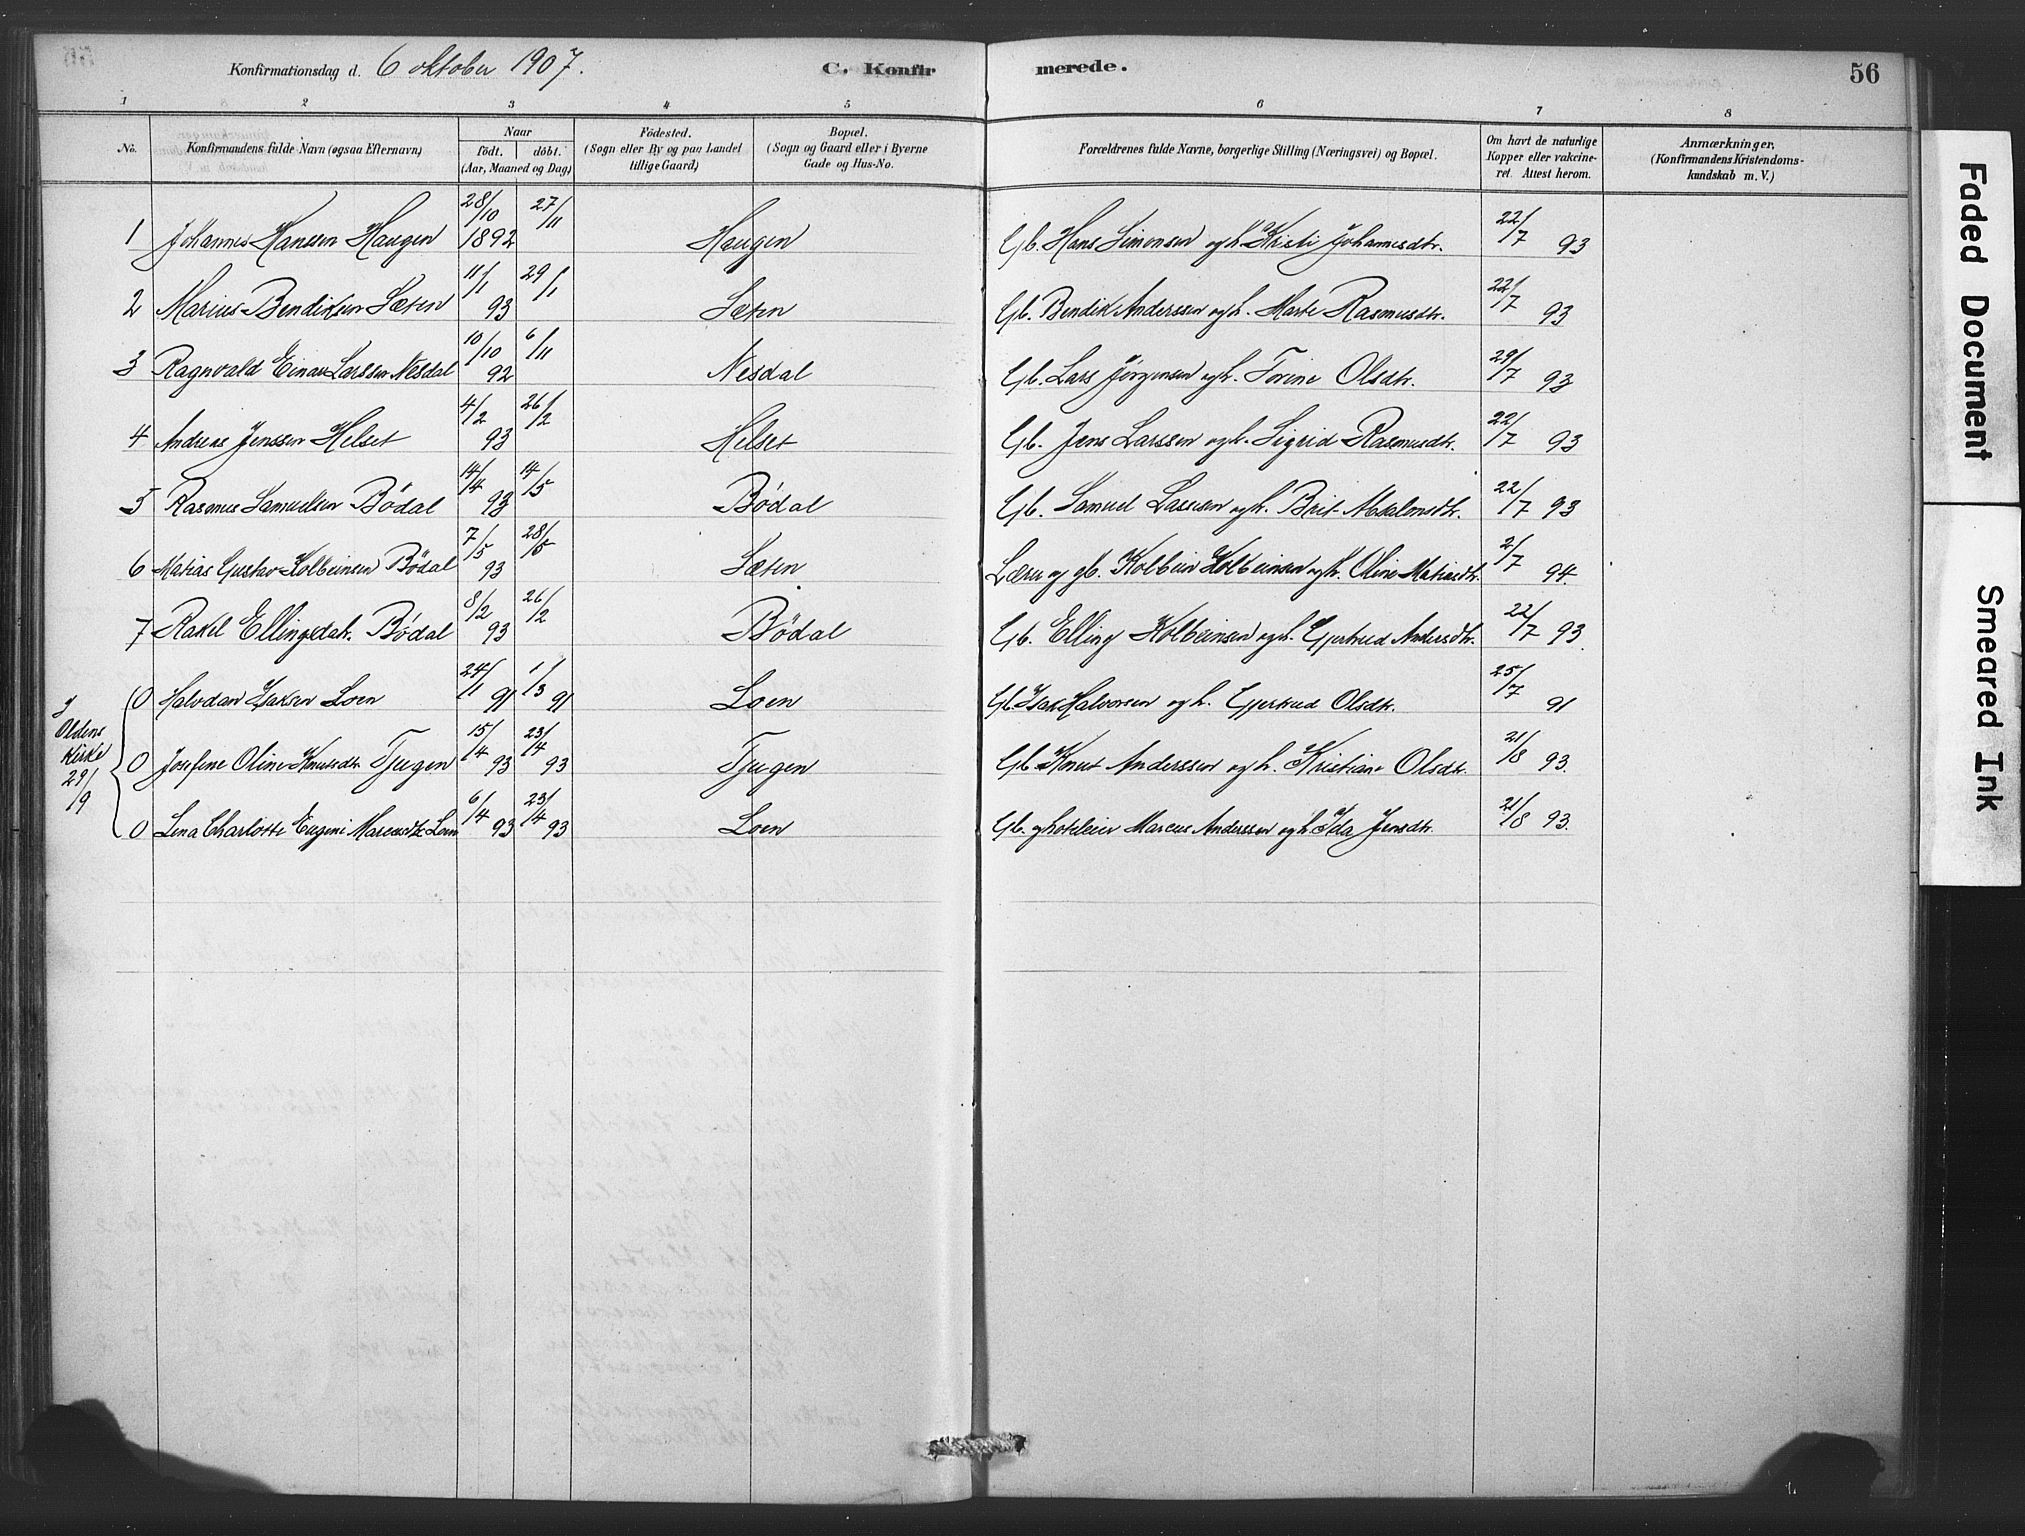 Konfirmationsdag d. 6 oktober 1907. C. Konfirmerede. 56
1 2 3 4 5 6 7 8
No. Konfirmandens fulde Navn (ogsaa Efternavn) Naar født. døbt. (Aar, Maaned og Dag) Fødested. (Sogn eller By og paa Landet tillige Gaard) Bopæl. (Sogn og Gaard eller i Byerne Gade og Hus-No. Forældrenes fulde Navne, borgerlige Stilling (Næringsvei) og Bopæl. Om havt de naturlige Kopper eller vakcineret. Attest herom. Anmærkninger, (Konfirmandens Kristendomskundskab m. V.)
1 Johannes Hansen Haugen 28/10 1892 27/11 Haugen Gb. Hans Simonsen og h. Kristi Johannesdtr. 22/7 93
2 Marius Bendiksen Sæten 11/1 93 29/1 Sæten Gb. Bendik Anderssen og h. Marte Rasmusdtr. 22/7 93
3 Ragnvald Einar Larssen Nesdal 10/10 92 6/11 Nesdal Gb. Lars Jørgensen og h. Torine Olsdtr. 29/7 93
4 Andreas Jenssen Helset 4/2 93 26/2 Helset Gb. Jens Larssen og h. Sigrid Rasmusdtr. 22/7 93
5 Rasmus Samuelsen Bødal 14/4 93 14/5 Bødal Gb. Samuel Lassesen og h. Brit 22/7 93
6 Matias Gustav Kolbeinsen Bødal 7/5 93 28/5 Sæten Lærer og gb. Kolbein Kolbeinsen og h. Oline Matiasdtr. 2/7 94
7 Rakel Ellingsdatr. Bødal 8/2 93 26/2 Bødal Gb. Elling Kolbeinsen og h. Gjertrud Andersdtr. 22/7 93
I Oldens Kirke 29/9
0 Halvdan Isaksen Loen 24/1 91 1/3 91 Loen Gb. Isak Halvorsen og h. Gjertrud Olsdtr. 25/7 91
0 Josefine Oline Knutsdtr Tjugen 15/4 93 23/4 93 Tjugen Gb. Knut Anderssen og h. Kristiane Olsdtr. 21/8 93.
0 Lina Charlotte Eugeni Marcusdtr. Loen 6/4 93 23/4 93 Loen Gb. og hoteleier Marcus Anderssen og h. Ida Jensdtr. 21/8 93.
Faded Document
Smeared Ink